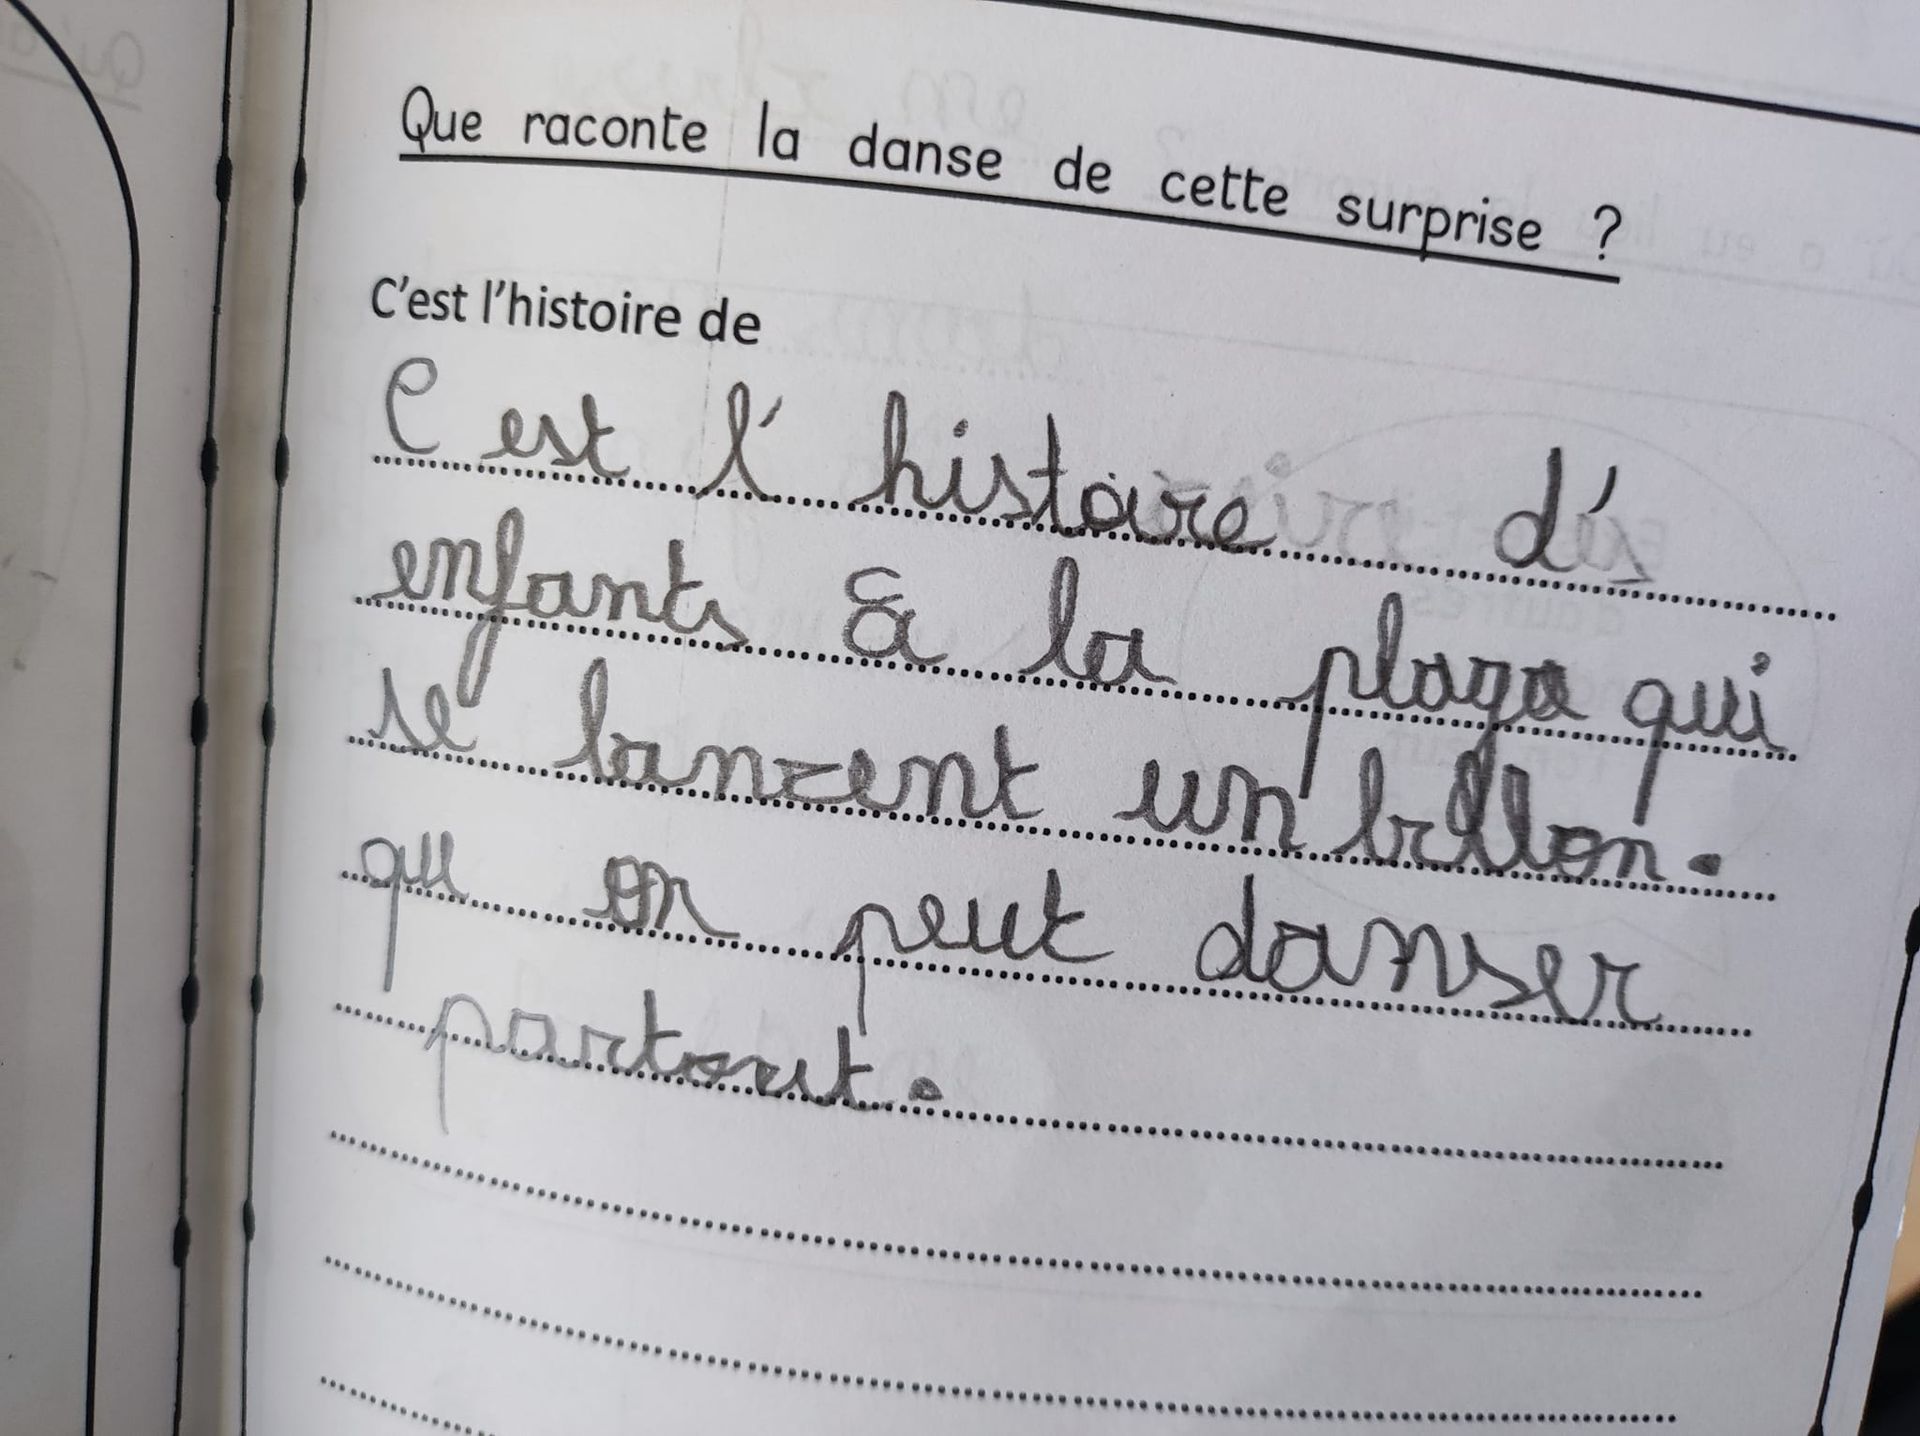 Que raconte la danse de cette surprise ?
C'est l'histoire de
C est l' histoire d'
enfants à la plage qui
se lancent un ballon.
qu on peut danser
partout.